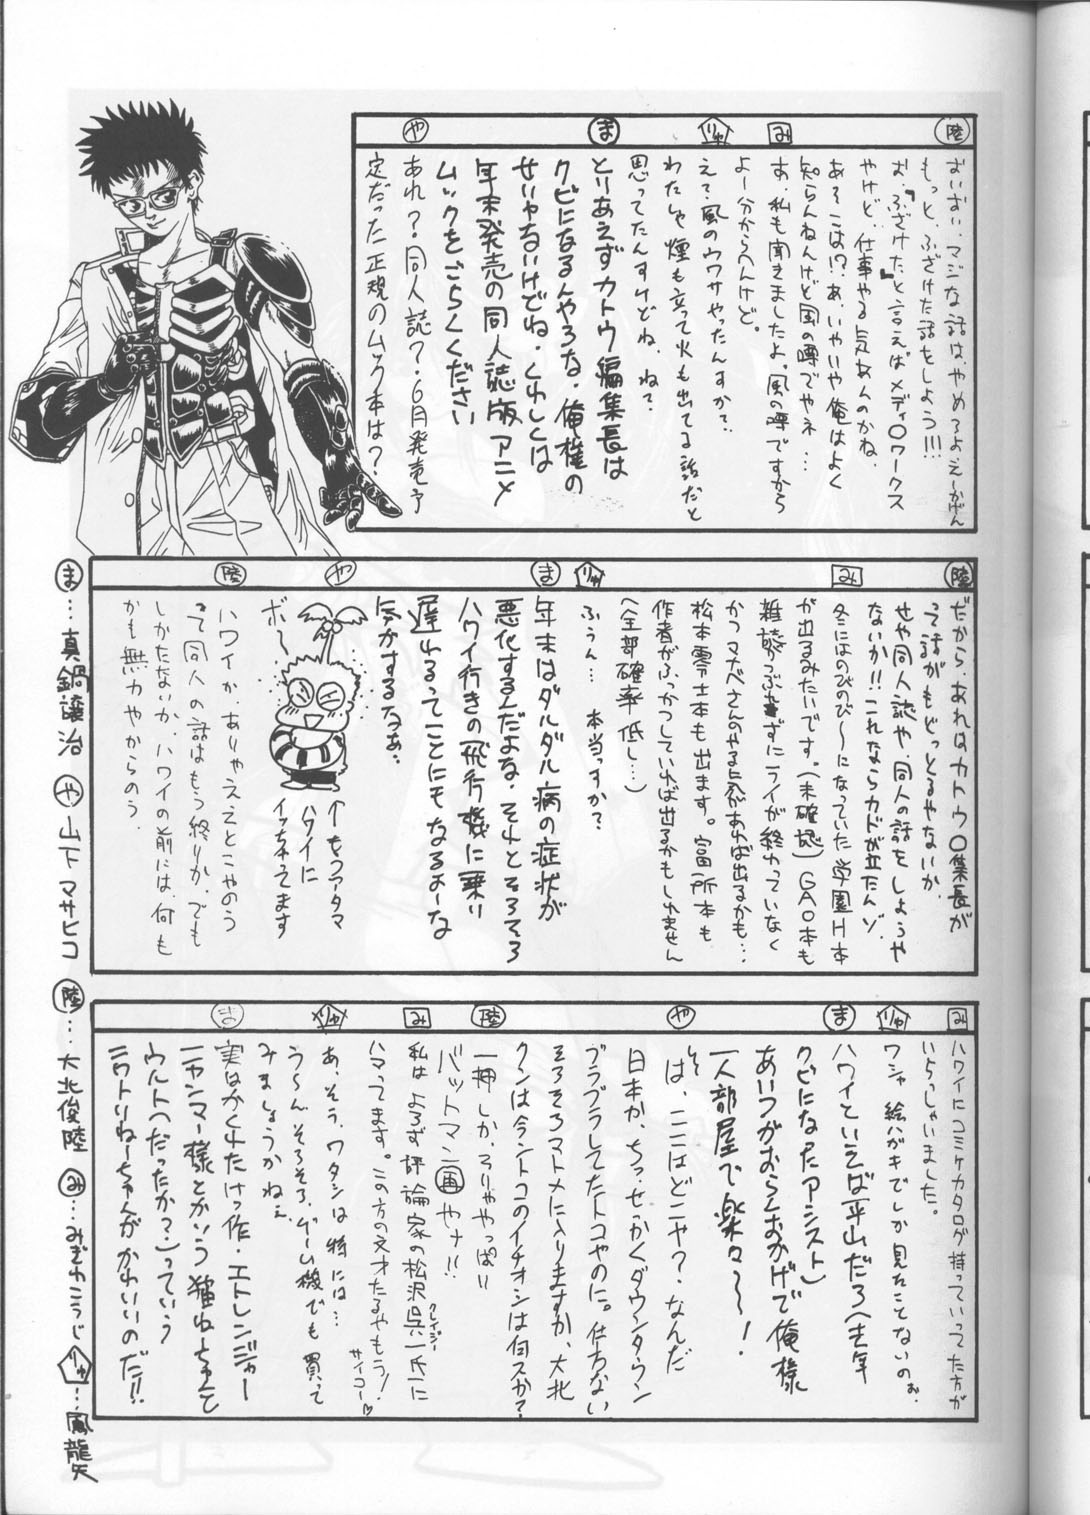 陸
おいおい、マジな話は、やめろよえーかげん
もっと、ふざけた話をしよう!!!
お、「ふざけた」と言えばメディ○ワークス
やけど、仕事やる気あんのかね、
あそこは!?あ、いやいや俺はよく
知らんねんけど風の噂でやネ…
み
あ、私も聞きましたよ。風の噂ですから
よー分からんけど。
りゅ
え?風のウワサやったんすか?
わたしゃ煙も立って火も出てる話だと
思ってたんすけどね、ね?
ま
とりあえずカトウ編集長は
クビになるんやろな、俺様の
せいやないけどね、くわしくは
年末発売の同人誌版アニメ
ムックをごらんください
や
あれ?同人誌?6月発売予
定だった正規のムック本は?
陸
だから、あれはカトウ○集長が
って話がもどっとるやないか、
せや同人誌や、同人の話をしようや
ないか!!これならカドが立たんゾ、
み
冬にはのびのび〜になっていた学園H本
が出るみたいです。(未確認)GAO本も
雑誌つぶれずにライが終わっていなく
かつマナベさんのやる気があれば出るかも…
松本零士本も出ます。富所本も
作者がふっかつしていれば出るかもしれません
(全部確率低し…)
りゅ
ふぅん…本当っすか?
ま
年末はダルダル病の症状が
悪化するんだよな、それとそろそろ
ハワイ行きの飛行機に乗り
遅れるってことにもなるよーな
気がするなぁ、
や
ボ〜
↑もうアタマ
ハワイに
イッちゃってます
陸
ハワイか、ありゃええとこやのう
って同人の話はもう終りか、でも
しかたないか、ハワイの前には、何も
かも無力やからのう、
み
ハワイにコミケカタログ持っていってた方が
いらっしゃいました。
りゅ
ワシャ絵ハガキでしか見たことないのぉ、
ま
ハワイといえば平山だろ(去年
クビになったアシスト)
あいつがおらんおかげで俺様
一人部屋で楽々〜〜!
や
は、ここはどこや?、なんだ
日本か、ちっ、せっかくダウンタウン
ブラブラしてたトコやのに。仕方ない
そろそろマトメに入りますか、大北
クンは今ントコのイチオシは何スか?
陸
一押しか、そりゃやっぱ!!
バットマン(画)やナ!!
み
私は、よろず評論家の松沢呉一氏に
クレイジー
ハマってます。この方の文才たるやもう!
サイコー♡
りゅ
あ、そう、ワタシは特には…
う〜ん、そろそろ、ゲーム機でも買って
みましょうかねぇ
ま
実はかくれたけっ作・エトレンジャー
ニャンマー様とかいう猫ねーちゃんと
ウルト(だったか?)っていう
ニワトリねーちゃんがかわいいのだ!!
ま…真鍋譲治 や…山下マサヒコ 陸…大北俊陸 み…みぎわこうじ りゅ…風龍矢